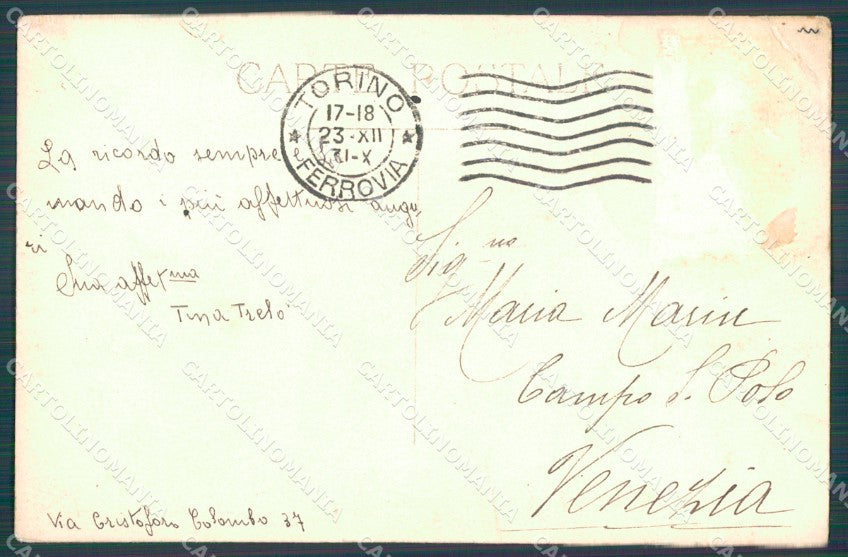 CARTE POSTALE
TORINO
17-18
23-XII
31-X
FERROVIA
La ricordo sempre e
mando i più affettuosi augu
ri
Sua affet ma
Tina
Sig. na
Maria Marin
Campo S. Polo
Venezia
Via Cristoforo Colombo 37
CARTOLINOMANIA